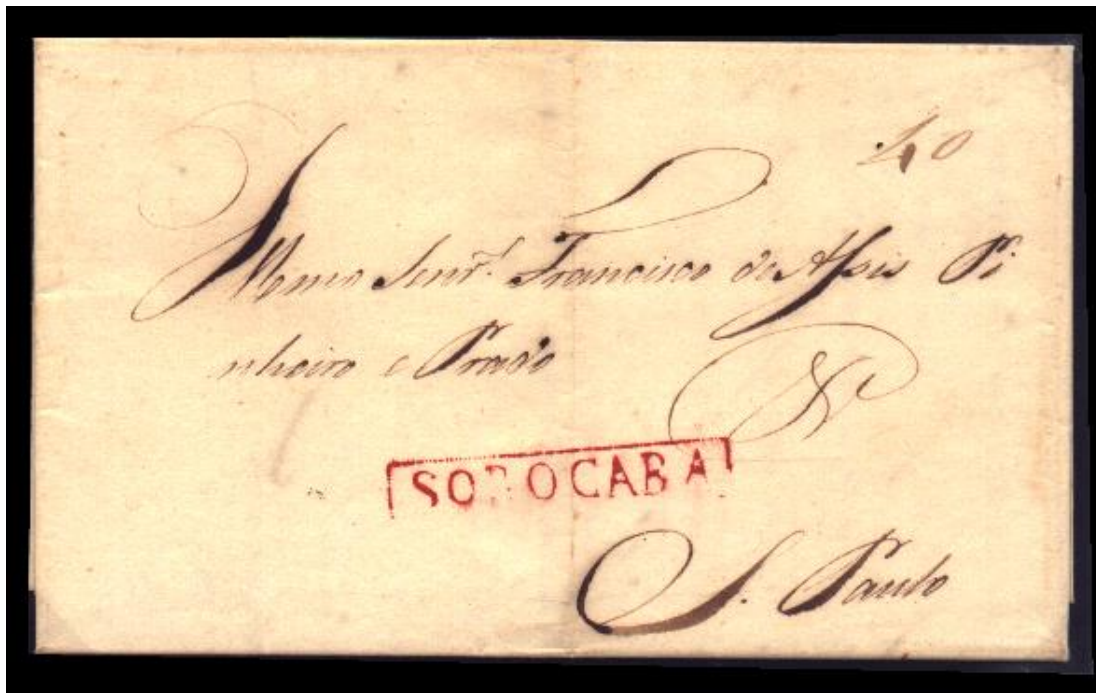 40
Illmo Senr. Francisco de Assis Pi
nheiro e Prado
SOROCABA
S. Paulo